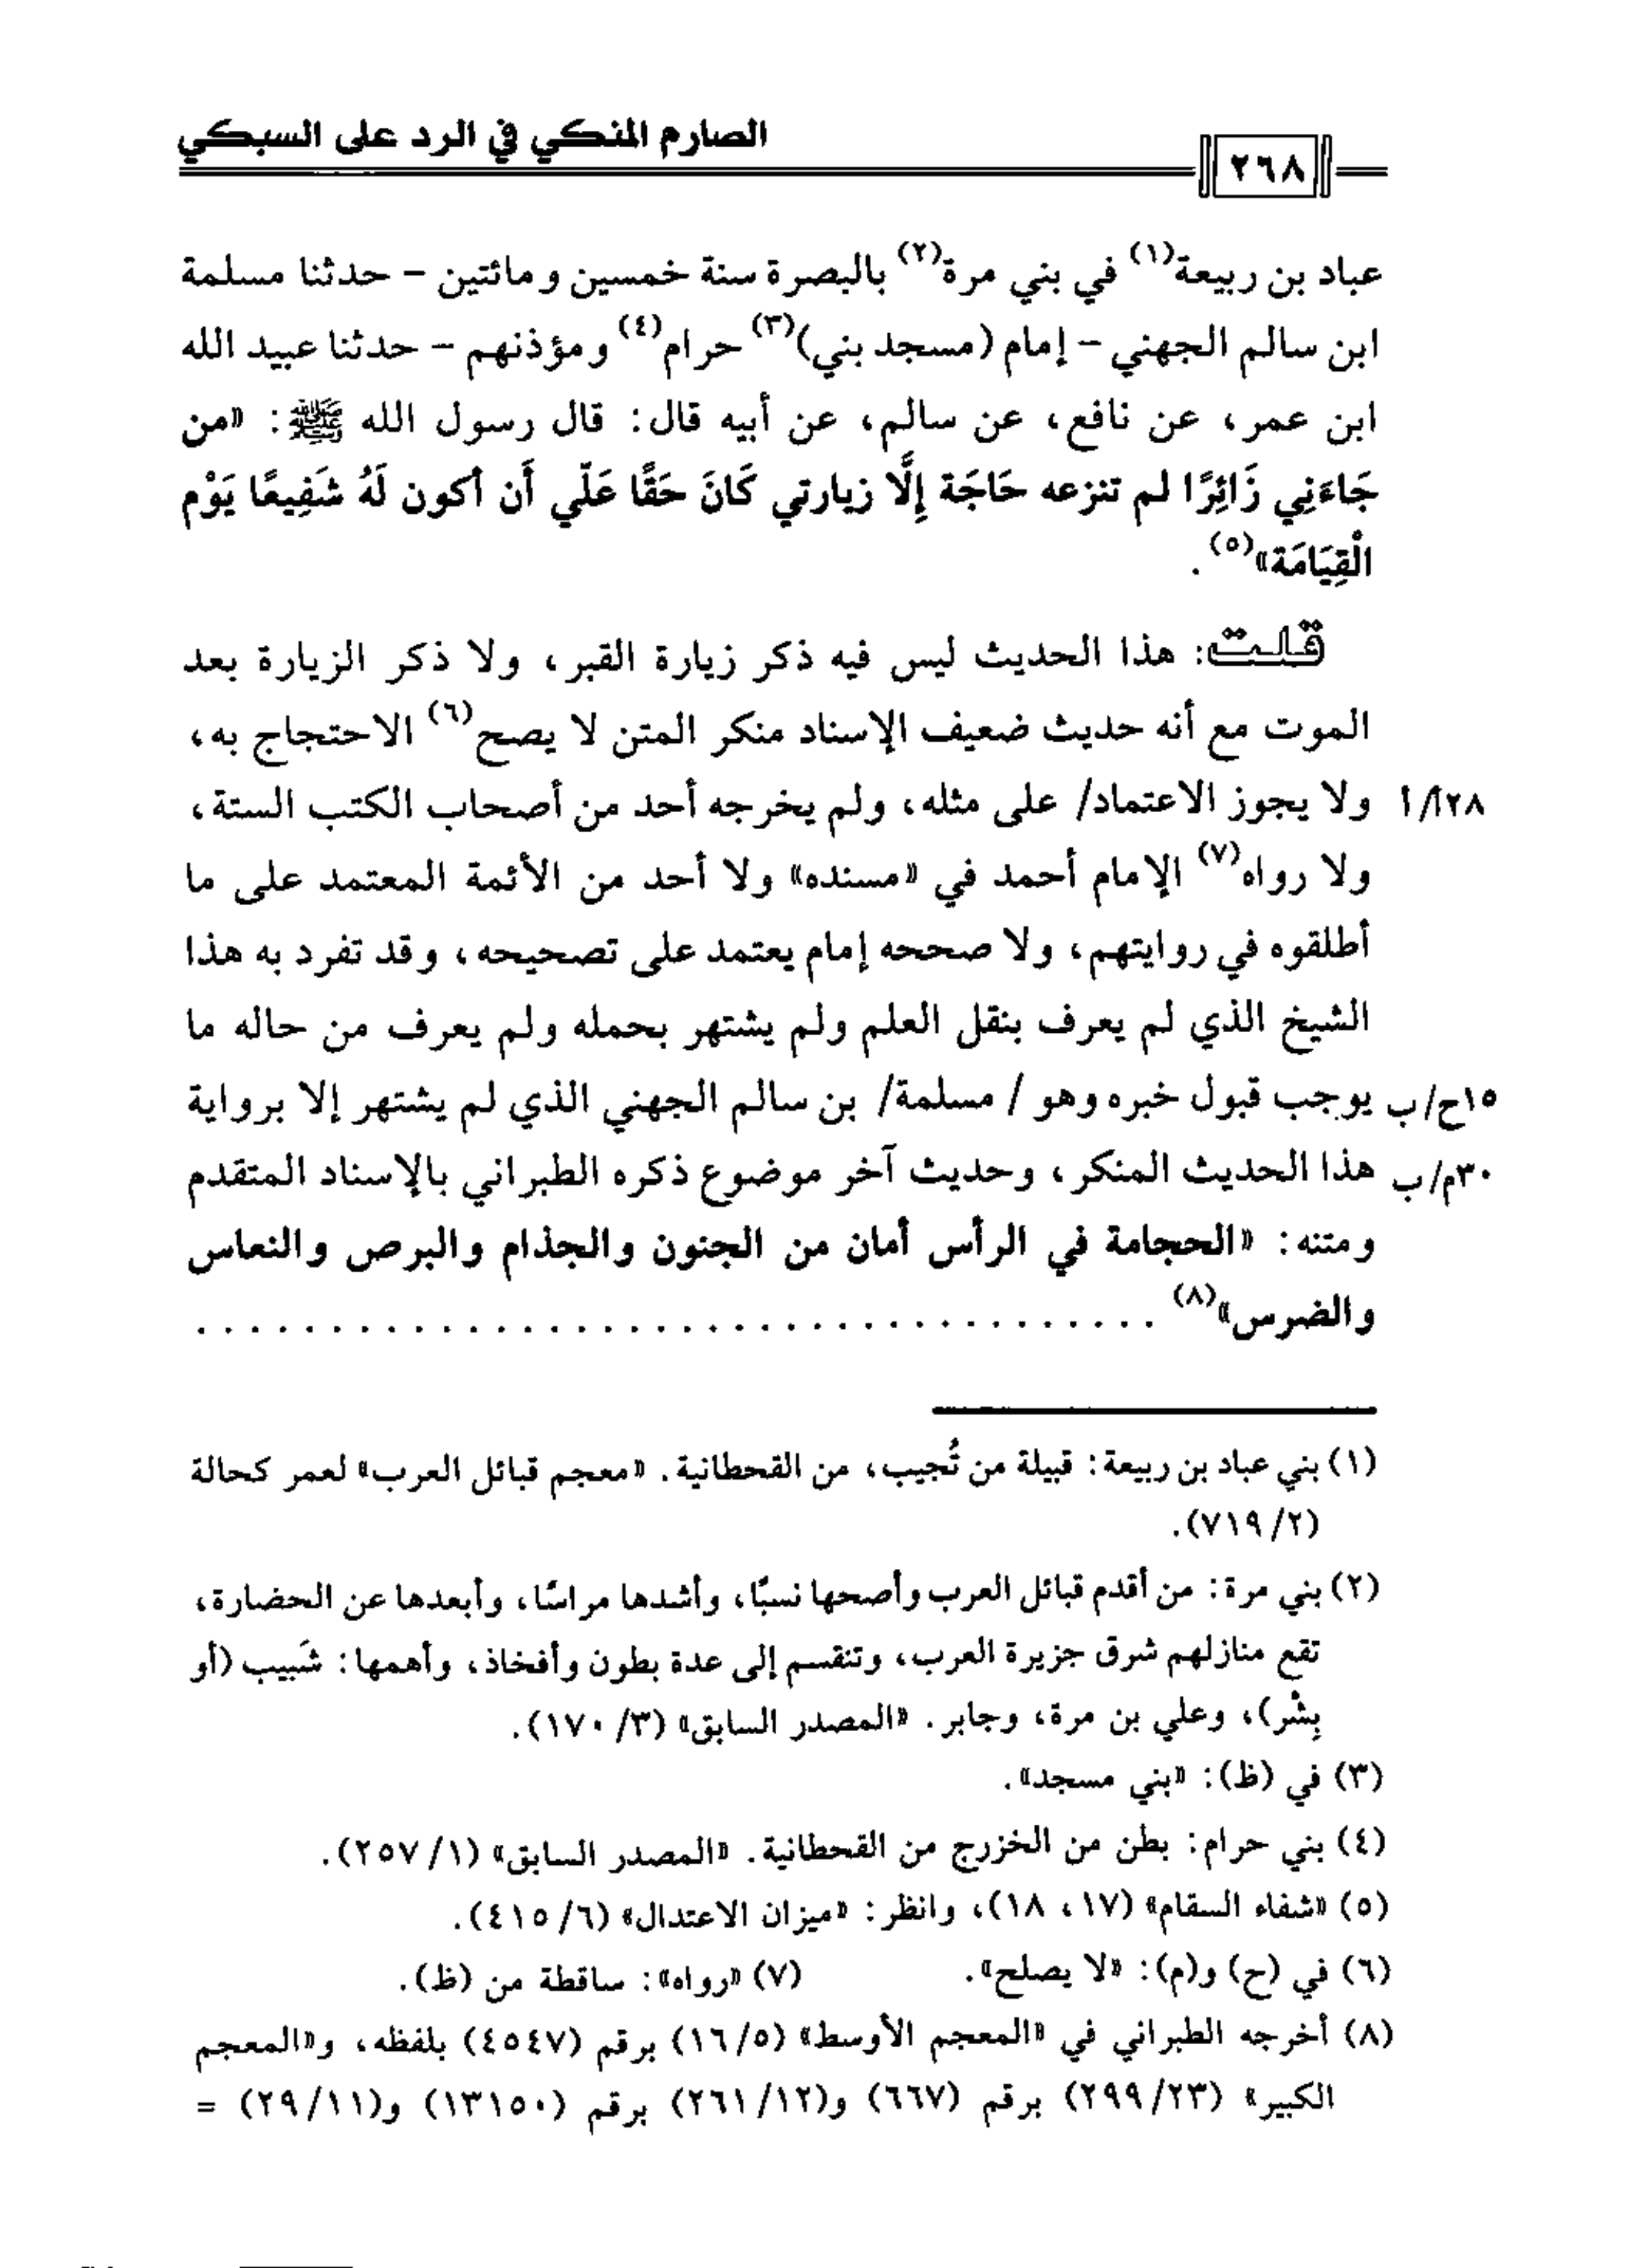 الصارم المنكي في الرد على السبكي
٢٦٨
عباد بن ربيعة(١) في بني مرة(٢) بالبصرة سنة خمسين ومائتين - حدثنا مسلمة
ابن سالم الجهني - إمام (مسجد بني)(٣) حرام(٤) ومؤذنهم - حدثنا عبيد الله
ابن عمر، عن نافع، عن سالم، عن أبيه قال: قال رسول الله ﷺ: «من
جَاءَنِي زَائِرًا لم تنزعه حَاجَة إِلَّا زيارتي كَانَ حَقًا عَلّي أَن أكون لَهُ شَفِيعًا يَوْم
الْقِيَامَة»(٥).
قلت: هذا الحديث ليس فيه ذكر زيارة القبر، ولا ذكر الزيارة بعد
الموت مع أنه حديث ضعيف الإسناد منكر المتن لا يصح(٦) الاحتجاج به،
٢٨أ/أ ولا يجوز الاعتماد/ على مثله، ولم يخرجه أحد من أصحاب الكتب الستة،
ولا رواه(٧) الإمام أحمد في «مسنده» ولا أحد من الأئمة المعتمد على ما
أطلقوه في روايتهم، ولا صححه إمام يعتمد على تصحيحه، وقد تفرد به هذا
الشيخ الذي لم يعرف بنقل العلم ولم يشتهر بحمله ولم يعرف من حاله ما
١٥ح/ب يوجب قبول خبره وهو / مسلمة/ بن سالم الجهني الذي لم يشتهر إلا برواية
٣٠م/ب هذا الحديث المنكر، وحديث آخر موضوع ذكره الطبراني بالإسناد المتقدم
ومتنه: «الحجامة في الرأس أمان من الجنون والجذام والبرص والنعاس
والضرس»(٨) . . . . . . . . . . . . . . . . . . . . . . . . . . . . . . . . . . . .
(١) بني عباد بن ربيعة: قبيلة من تُجيب، من القحطانية. «معجم قبائل العرب» لعمر كحالة
(٢/ ٧١٩).
(٢) بني مرة: من أقدم قبائل العرب وأصحها نسبًا، وأشدها مراسًا، وأبعدها عن الحضارة،
تقع منازلهم شرق جزيرة العرب، وتنقسم إلى عدة بطون وأفخاذ، وأهمها: شَبيب (أو
بِشْر)، وعلي بن مرة، وجابر. «المصدر السابق» (٣/ ١٧٠).
(٣) في (ظ): «بني مسجد».
(٤) بني حرام: بطن من الخزرج من القحطانية. «المصدر السابق» (١/ ٢٥٧).
(٥) «شفاء السقام» (١٧، ١٨)، وانظر: «ميزان الاعتدال» (٦/ ٤١٥).
(٦) في (ح) و(م): «لا يصلح». (٧) «رواه»: ساقطة من (ظ).
(٨) أخرجه الطبراني في «المعجم الأوسط» (٥/ ١٦) برقم (٤٥٤٧) بلفظه، و«المعجم
الكبير» (٢٣/ ٢٩٩) برقم (٦٦٧) و(١٢/ ٢٦١) برقم (١٣١٥٠) و(١١/ ٢٩) =